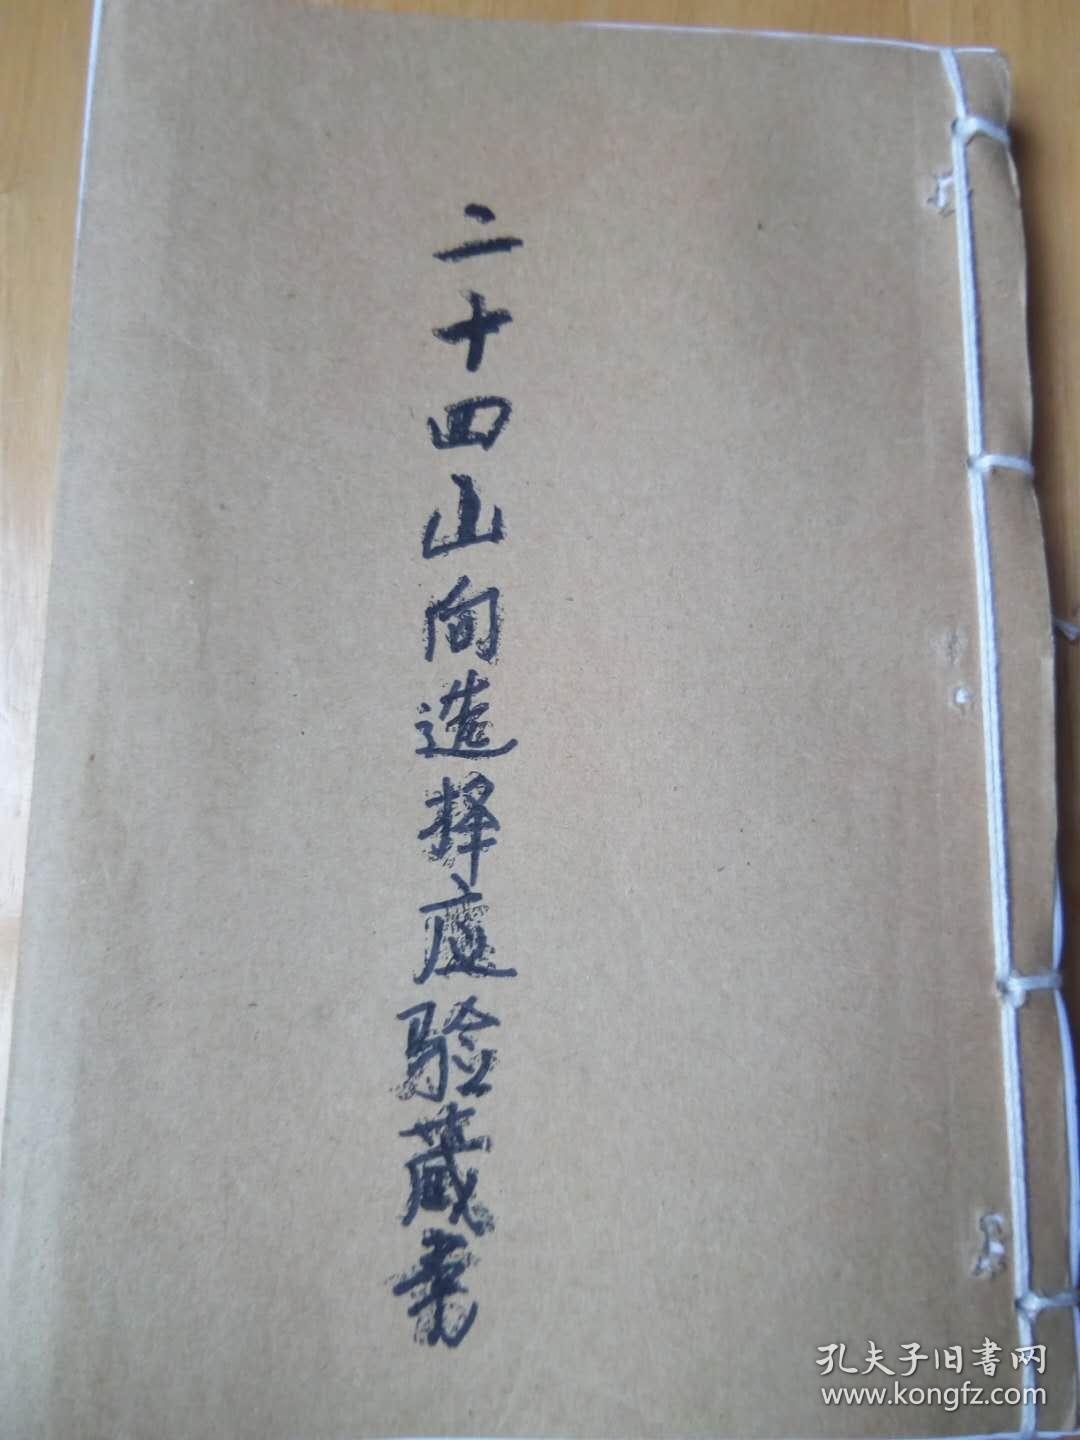 二十四山向造择应验藏书
孔夫子旧書网
www.kongfz.com